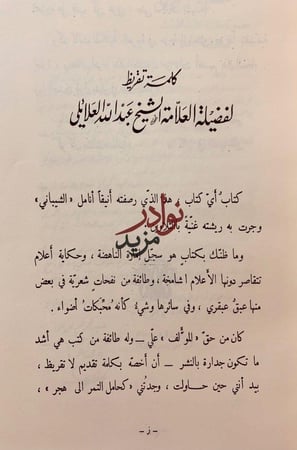 كلمة تقريظ
لفضيلة العلامة الشيخ عبد الله العلايلي
كتابُ أيّ كتاب، هذا الذي رصفته أنيقاً أنامل «الشيباني»
وجرت به ريشته غنيّة
نوادر
مزيد
وما ظنّك بكتاب هو سجلّ الناهضة، وحكاية أعلام
تتقاصر دونها الأعلام الشامخة، وطائفة من نفحات شعريّة في بعض
منها عبقٌ عبقري، وفي سائرها وشيٌ كأنه مُحبّكات أضواء.
كان من حقّ «المؤلف» عليّ — وله طائفة من كتب هي أشد
ما تكون جدارة بالنشر — أن أخصّه بكلمة تقديم لا تقريظ،
بيد أنني حين حاولت، وجدتُني «كحامل التمر الى هجر»،
— ز —